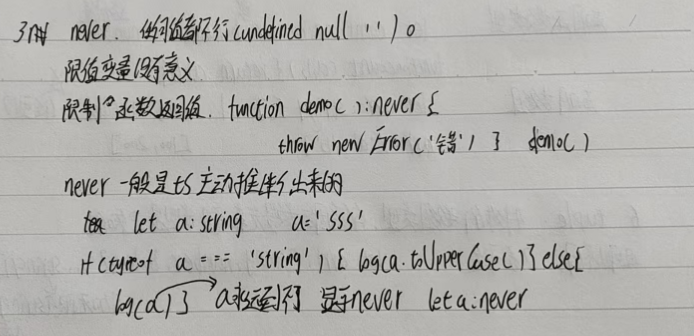 never. 任何值都不行(undefined null '')。
限值变量没有意义
限制函数返回值. function demo():never {
throw new Error('错') } demo()
never 一般是ts主动推断出来的
let a: string a='sss'
if(typeof a === 'string') { log(a.toUpperCase()} else{
log(a)} a永远到不了 显示never let a:never